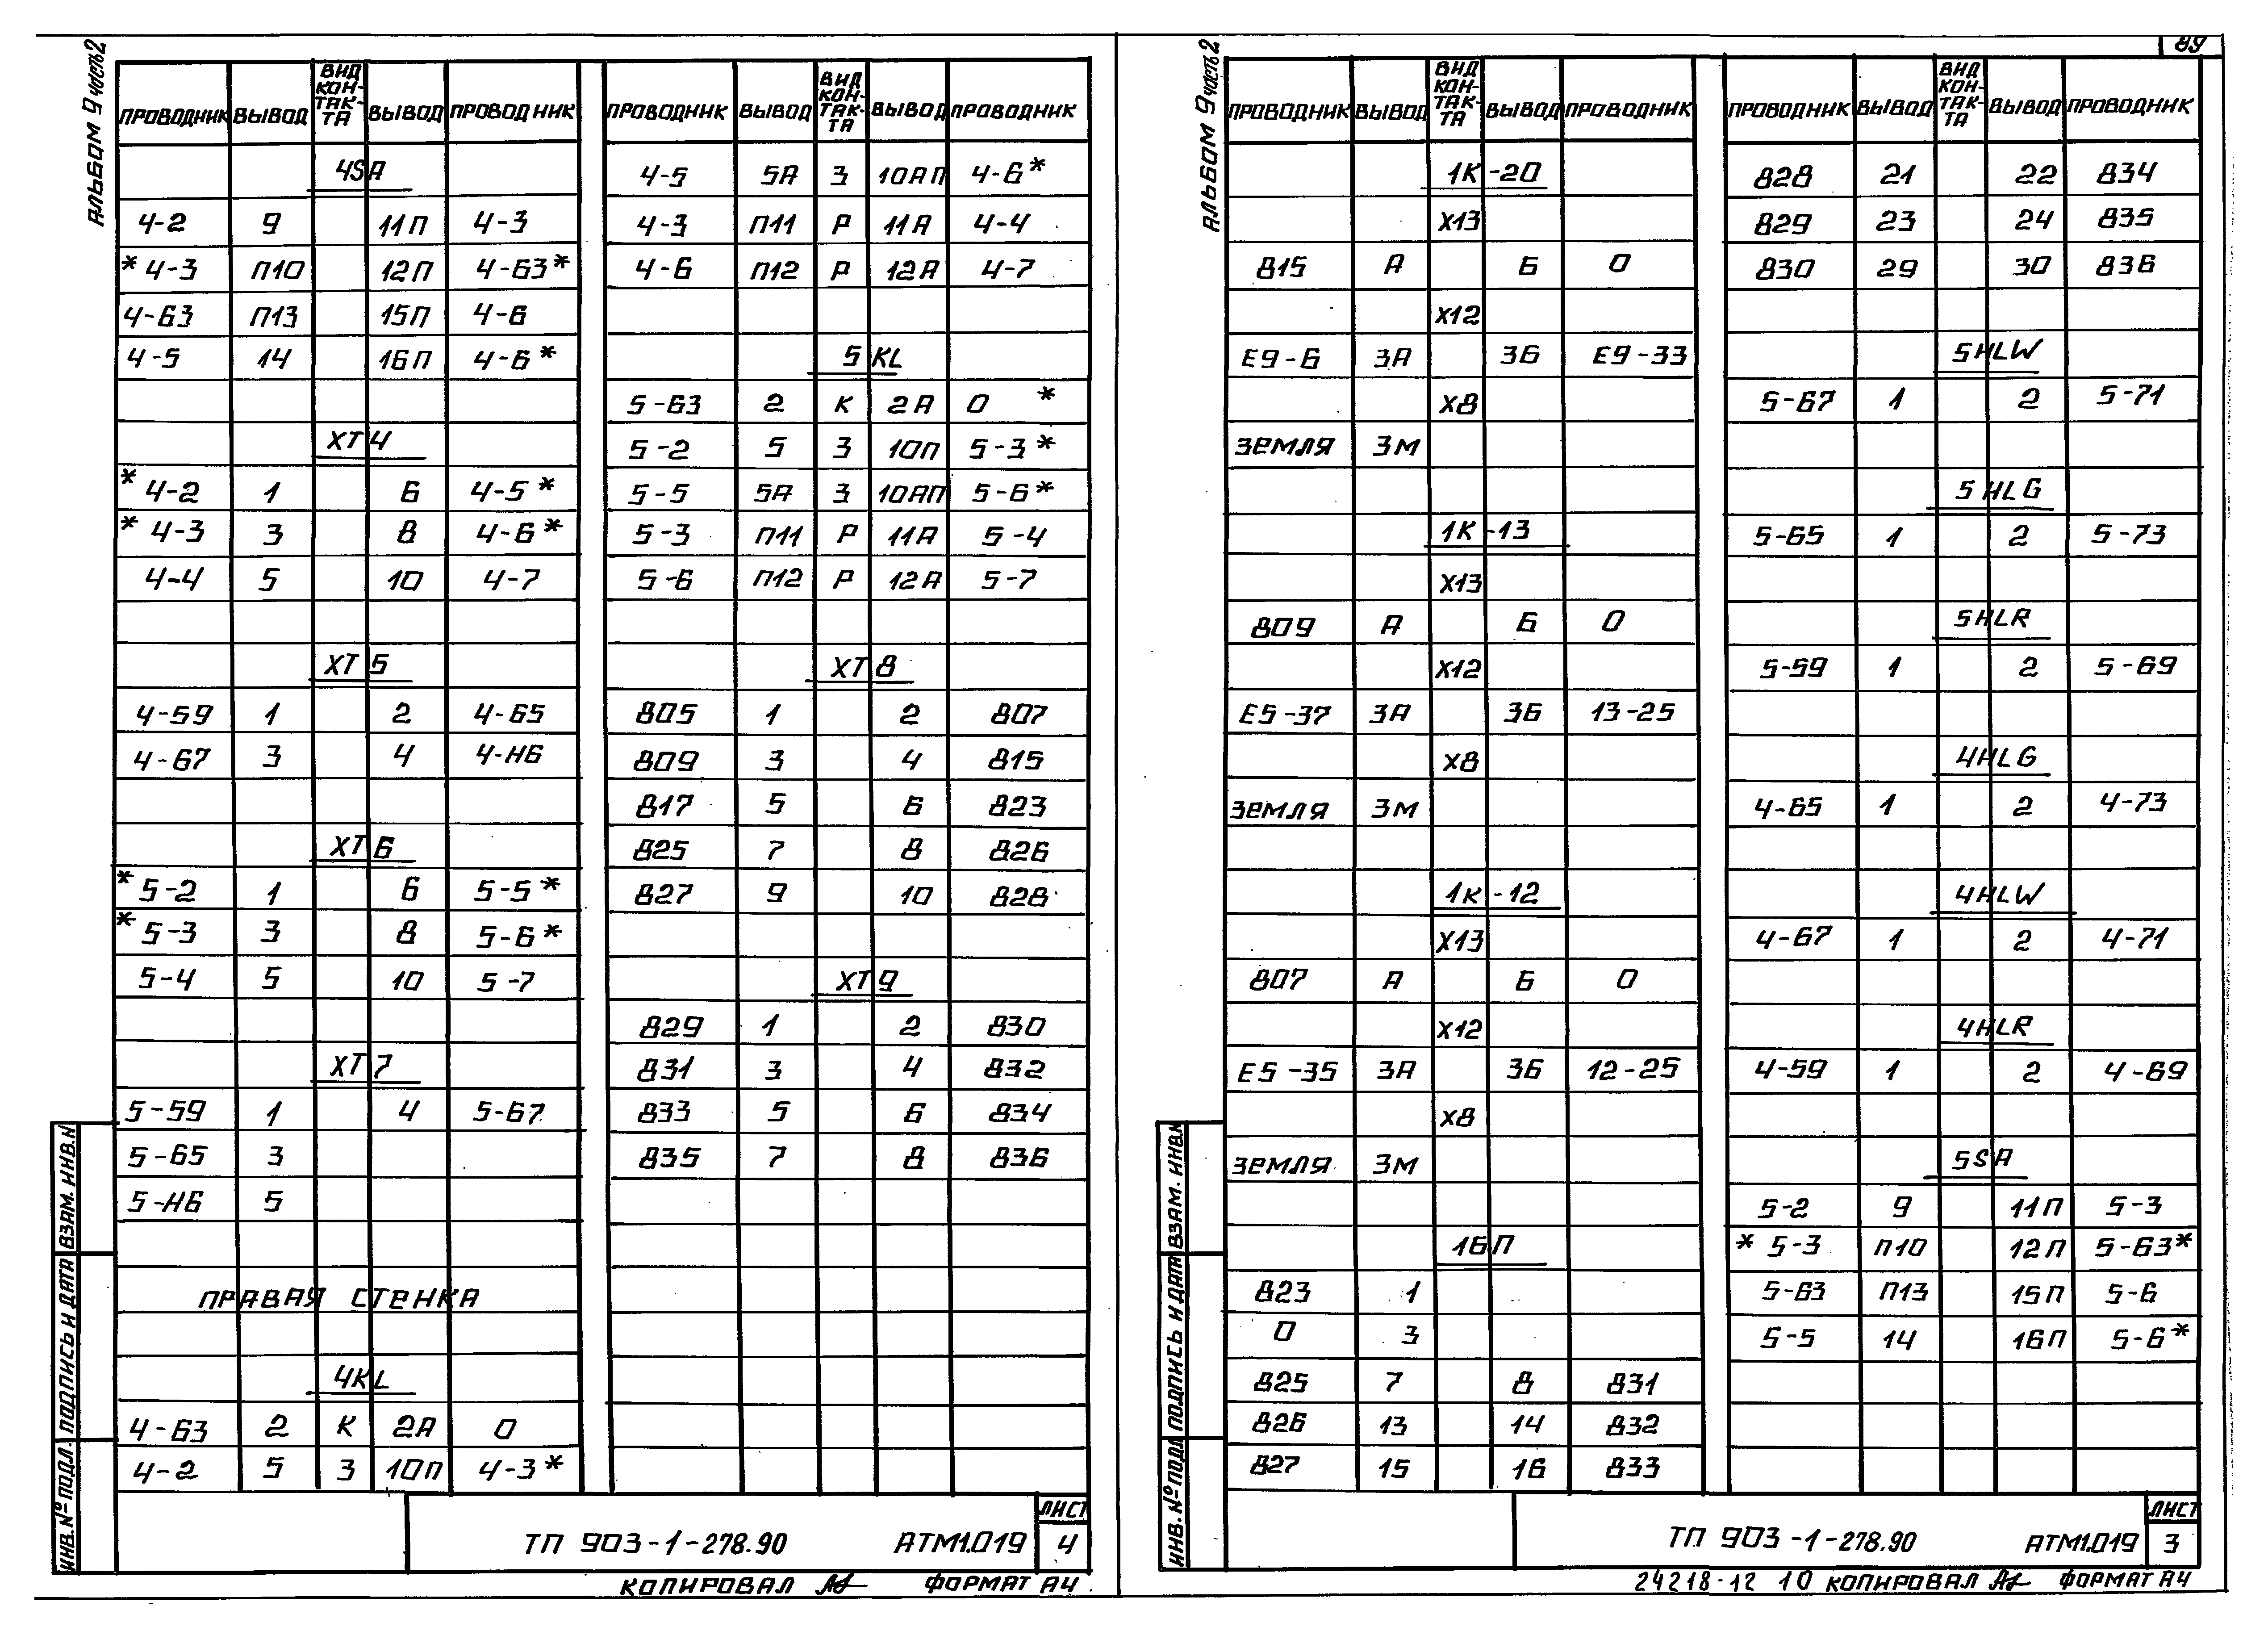 89
АЛЬБОМ 9 часть 2
ПРОВОДНИК ВЫВОД ВИД КОН-ТАК-ТА ВЫВОД ПРОВОДНИК
4SA
4-2 9 11П 4-3
*4-3 П10 12П 4-63*
4-63 П13 15П 4-6
4-5 14 16П 4-6*
XT4
*4-2 1 6 4-5*
*4-3 3 8 4-6*
4-4 5 10 4-7
XT5
4-59 1 2 4-65
4-67 3 4 4-Н6
XT6
*5-2 1 6 5-5*
*5-3 3 8 5-6*
5-4 5 10 5-7
XT7
5-59 1 4 5-67
5-65 3
5-Н6 5
ПРАВАЯ СТЕНКА
4KL
4-63 2 К 2А 0
4-2 5 З 10П 4-3*
ПРОВОДНИК ВЫВОД ВИД КОН-ТАК-ТА ВЫВОД ПРОВОДНИК
4-5 5А З 10АП 4-6*
4-3 П11 Р 11А 4-4
4-6 П12 Р 12А 4-7
5KL
5-63 2 К 2А 0 *
5-2 5 З 10П 5-3*
5-5 5А З 10АП 5-6*
5-3 П11 Р 11А 5-4
5-6 П12 Р 12А 5-7
XT8
805 1 2 807
809 3 4 815
817 5 6 823
825 7 8 826
827 9 10 828
XT9
829 1 2 830
831 3 4 832
833 5 6 834
835 7 8 836
ИНВ. № ПОДЛ. ПОДПИСЬ И ДАТА ВЗАМ. ИНВ. N
ТП 903-1-278.90 АТМ1.019 ЛИСТ 4
КОПИРОВАЛ ФОРМАТ А4
АЛЬБОМ 9 часть 2
ПРОВОДНИК ВЫВОД ВИД КОН-ТАК-ТА ВЫВОД ПРОВОДНИК
1К-20
X13
815 А Б 0
X12
Е9-6 3А 3Б Е9-33
X8
ЗЕМЛЯ 3М
1К-13
X13
809 А Б 0
X12
Е5-37 3А 3Б 13-25
X8
ЗЕМЛЯ 3М
1К-12
X13
807 А Б 0
X12
Е5-35 3А 3Б 12-25
X8
ЗЕМЛЯ 3М
16П
823 1
0 3
825 7 8 831
826 13 14 832
827 15 16 833
ПРОВОДНИК ВЫВОД ВИД КОН-ТАК-ТА ВЫВОД ПРОВОДНИК
828 21 22 834
829 23 24 835
830 29 30 836
5HLW
5-67 1 2 5-71
5HLG
5-65 1 2 5-73
5HLR
5-59 1 2 5-69
4HLG
4-65 1 2 4-73
4HLW
4-67 1 2 4-71
4HLR
4-59 1 2 4-69
5SA
5-2 9 11П 5-3
*5-3 П10 12П 5-63*
5-63 П13 15П 5-6
5-5 14 16П 5-6*
ИНВ. № ПОДЛ ПОДПИСЬ И ДАТА ВЗАМ. ИНВ.N
ТП 903-1-278.90 АТМ1.019 ЛИСТ 3
24218-12 10 КОПИРОВАЛ ФОРМАТ А4